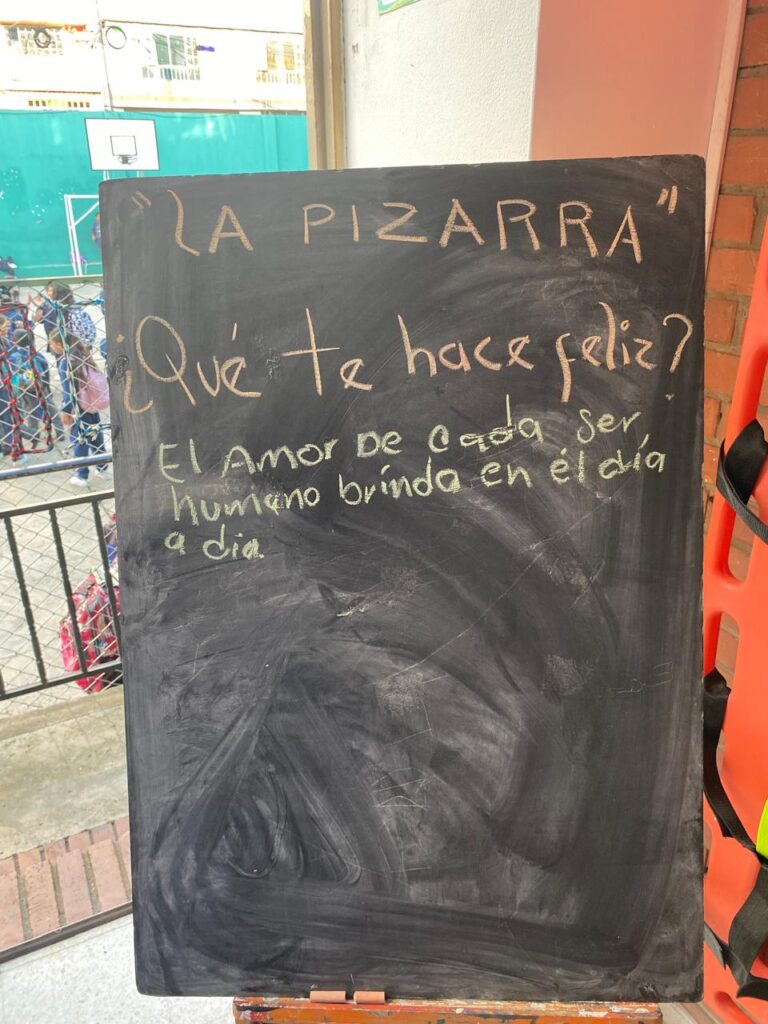 "LA PIZARRA"
¿Qué te hace feliz?
El Amor De cada ser
humano brinda en él día
a dia